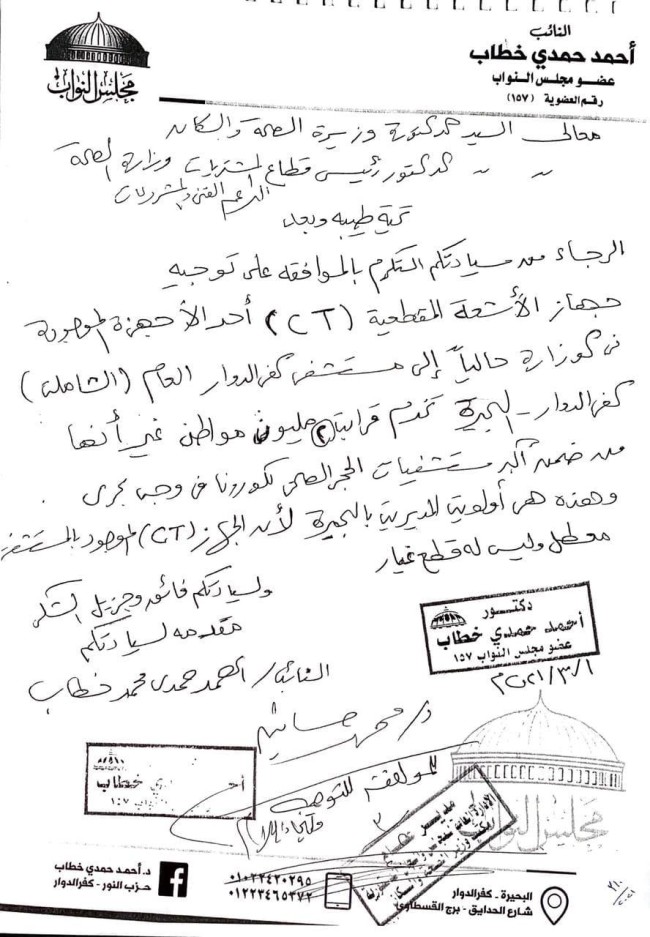 النائب
أحمد حمدي خطاب
عضو مجلس النواب
رقم العضوية (١٥٧)
مجلس النواب
معالى السيد الدكتورة وزيرة الصحة والسكان
" " الدكتور رئيس قطاع المشتريات وزارة الصحة
الدعم الفنى والمشروعات
تحية طيبه وبعد
الرجاء من سيادتكم التكرم بالموافقه على توجيه
جهاز الأشعة المقطعية (CT) أحد الأجهزة الموجودة
فى الوزارة حالياً إلى مستشفى كفر الدوار العام (الشاملة)
كفر الدوار - البحيرة تخدم قرابة ٢ مليون مواطن غير أنها
من ضمن أكبر مستشفيات الحجر الصحى لكورونا فى وجه بحرى
وهذه هى أولوية المديرية بالبحيرة لأن الجهاز (CT) الموجود بالمستشفى
معطل وليس له قطع غيار
ولسيادتكم فائق وجزيل الشكر
مقدمه لسيادتكم
النائب / أحمد حمدى محمد خطاب
دكتور
أحمد حمدي خطاب
عضو مجلس النواب ١٥٧
٢٠٢١/٣/١م
د/ محمد حسانى
خطاب
١٥٧
للموافقة للتوجيه
مجلس النواب
د.أحمد حمدي خطاب
حزب النور - كفرالدوار
٠١٠٢٢٤٢٠٢٩٥
٠١٢٢٣٤٦٥٣٧٢
البحيرة - كفرالدوار
شارع الحدايق - برج القسطاوي